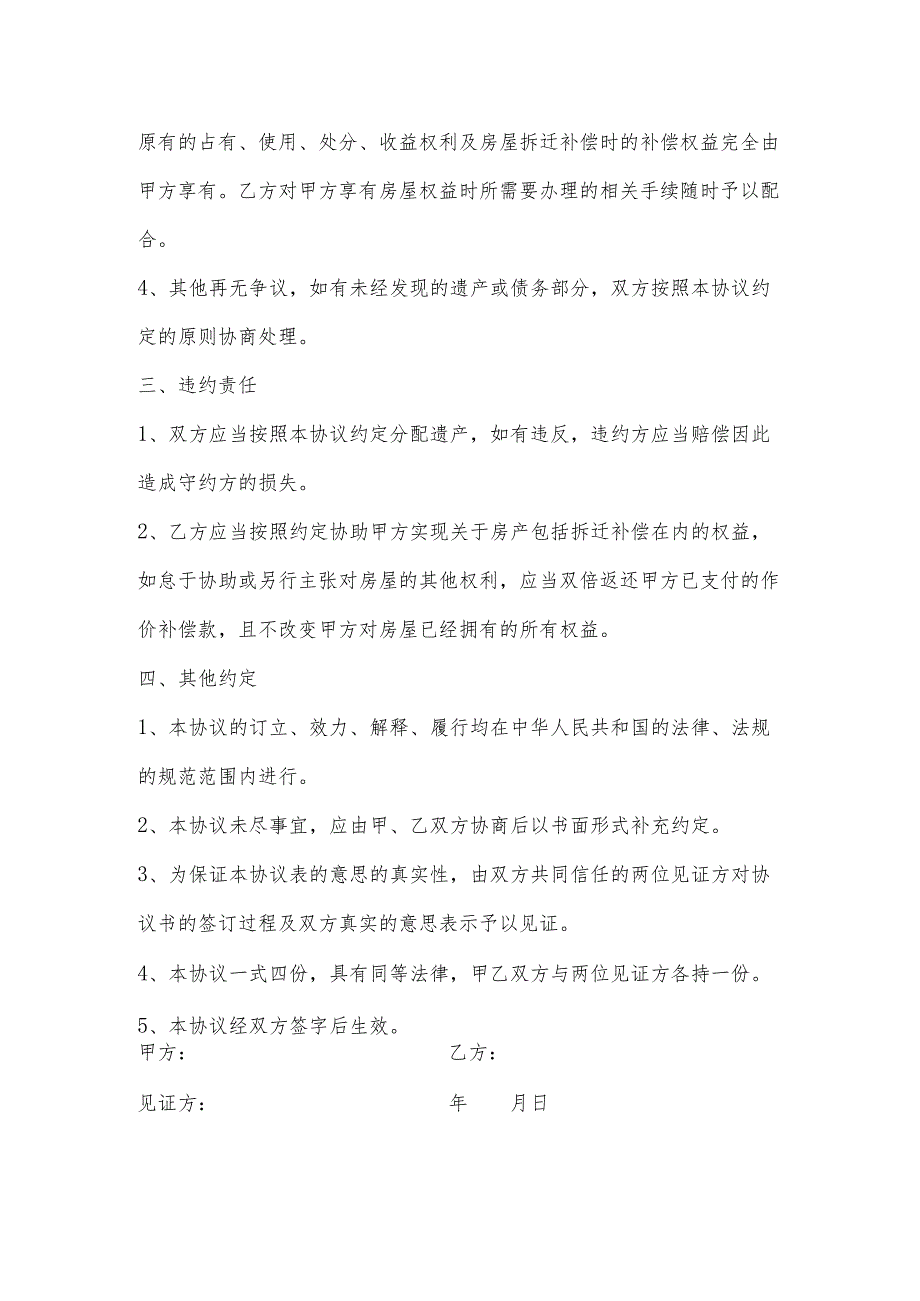 原有的占有、使用、处分、收益权利及房屋拆迁补偿时的补偿权益完全由
甲方享有。乙方对甲方享有房屋权益时所需要办理的相关手续随时予以配
合。
4、其他再无争议，如有未经发现的遗产或债务部分，双方按照本协议约
定的原则协商处理。
三、违约责任
1、双方应当按照本协议约定分配遗产，如有违反，违约方应当赔偿因此
造成守约方的损失。
2、乙方应当按照约定协助甲方实现关于房产包括拆迁补偿在内的权益，
如怠于协助或另行主张对房屋的其他权利，应当双倍返还甲方已支付的作
价补偿款，且不改变甲方对房屋已经拥有的所有权益。
四、其他约定
1、本协议的订立、效力、解释、履行均在中华人民共和国的法律、法规
的规范范围内进行。
2、本协议未尽事宜，应由甲、乙双方协商后以书面形式补充约定。
3、为保证本协议表的意思的真实性，由双方共同信任的两位见证方对协
议书的签订过程及双方真实的意思表示予以见证。
4、本协议一式四份，具有同等法律，甲乙双方与两位见证方各持一份。
5、本协议经双方签字后生效。
甲方： 乙方：
见证方： 年 月日